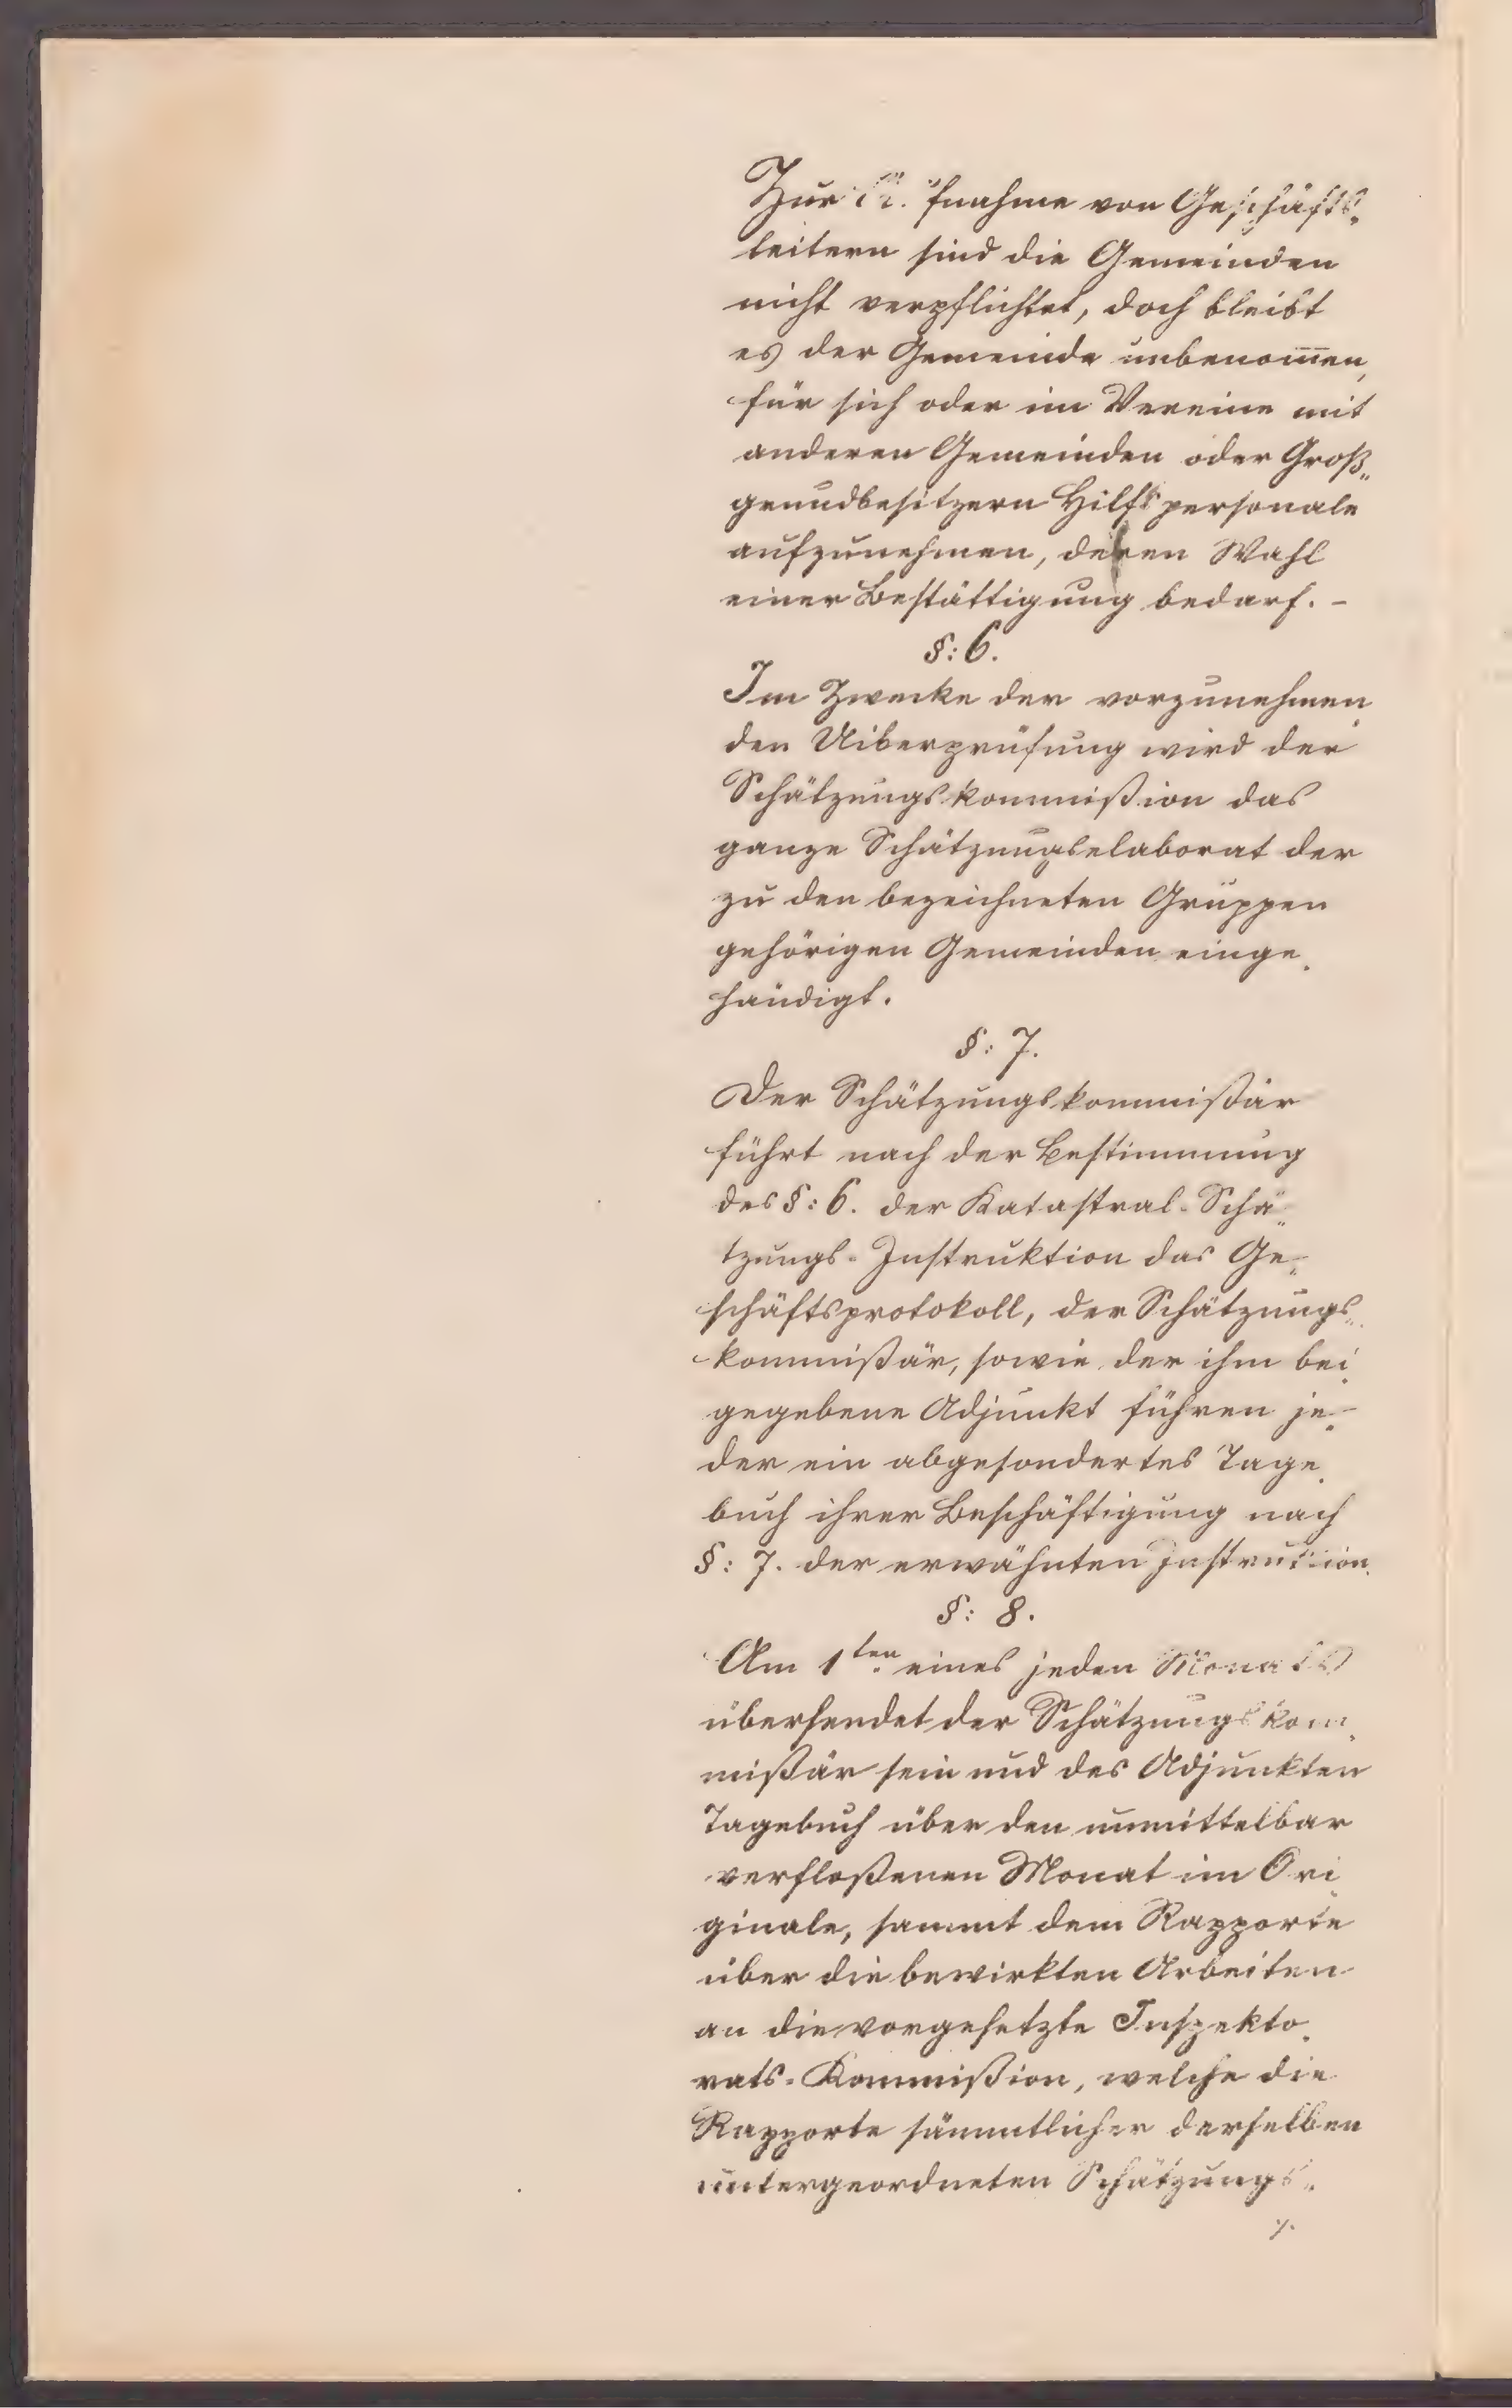 Zur Aufnahme von Geschäfts„
leitern sind die Gemeinden
nicht verpflichtet, doch bleibt
es der Gemeinde unbenom̅en,
für sich oder im Vereine mit
anderen Gemeinden oder Groß„
grundbesitzern Hilfspersonale
aufzunehmen, deren Wahl
einer Bestättigung bedarf. –
§: 6.
Im Zwecke der vorzunehmen„
den Uiberprüfung wird der
Schätzungskommißion das
ganze Schätzungselaborat der
zu den bezeichneten Gruppen
gehörigen Gemeinden einge„
händigt.
§: 7.
Der Schätzungskommißär
führt nach der Bestimmung
des §: 6. der Katastral-Schä„
tzungs-Instruktion das Ge„
schäftsprotokoll, der Schätzungs„
kommißär, sowie der ihm bei„
gegebene Adjunkt führen je„
der ein abgesondertes Tage„
buch ihrer Beschäftigung nach
§: 7. der erwähnten Instruktion.
§: 8.
Am 1ten eines jeden Monats
übersendet der Schätzungskom„
mißär sein und des Adjunkten
Tagebuch über den unmittelbar
verfloßenen Monat im Ori„
ginale, sammt dem Rapporte
über die bewirkten Arbeiten
an die vorgesetzte Inspekto„
rats-Kommißion, welche die
Rapporte sämmtlicher derselben
untergeordneten Schätzungs„
⁒